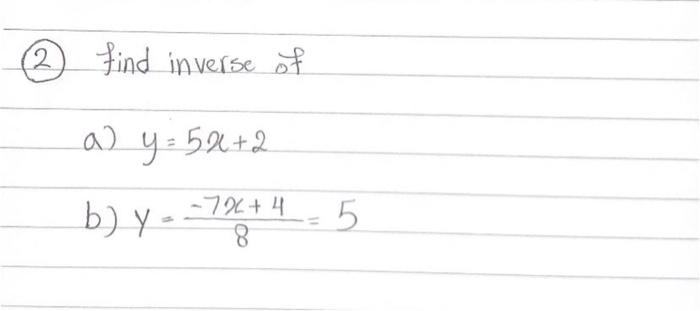 ② find inverse of
a) y = 5x+2
b) y = \frac{-7x+4}{8} = 5